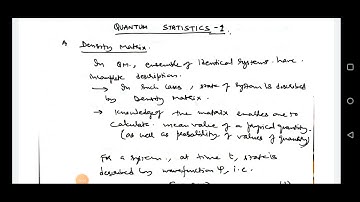 QUANTUM STATISTICS-1.
Density Matrix.
In QM, ensemble of Identical Systems have
incomplete description.
→ In such cases, state of system is described
by Density Matrix.
→ Knowledge of the matrix enables one to
calculate mean value of a physical quantity.
(as well as probability of values of quantity)
For a system, at time t, state is
described by wavefunction Ψ, i.e.